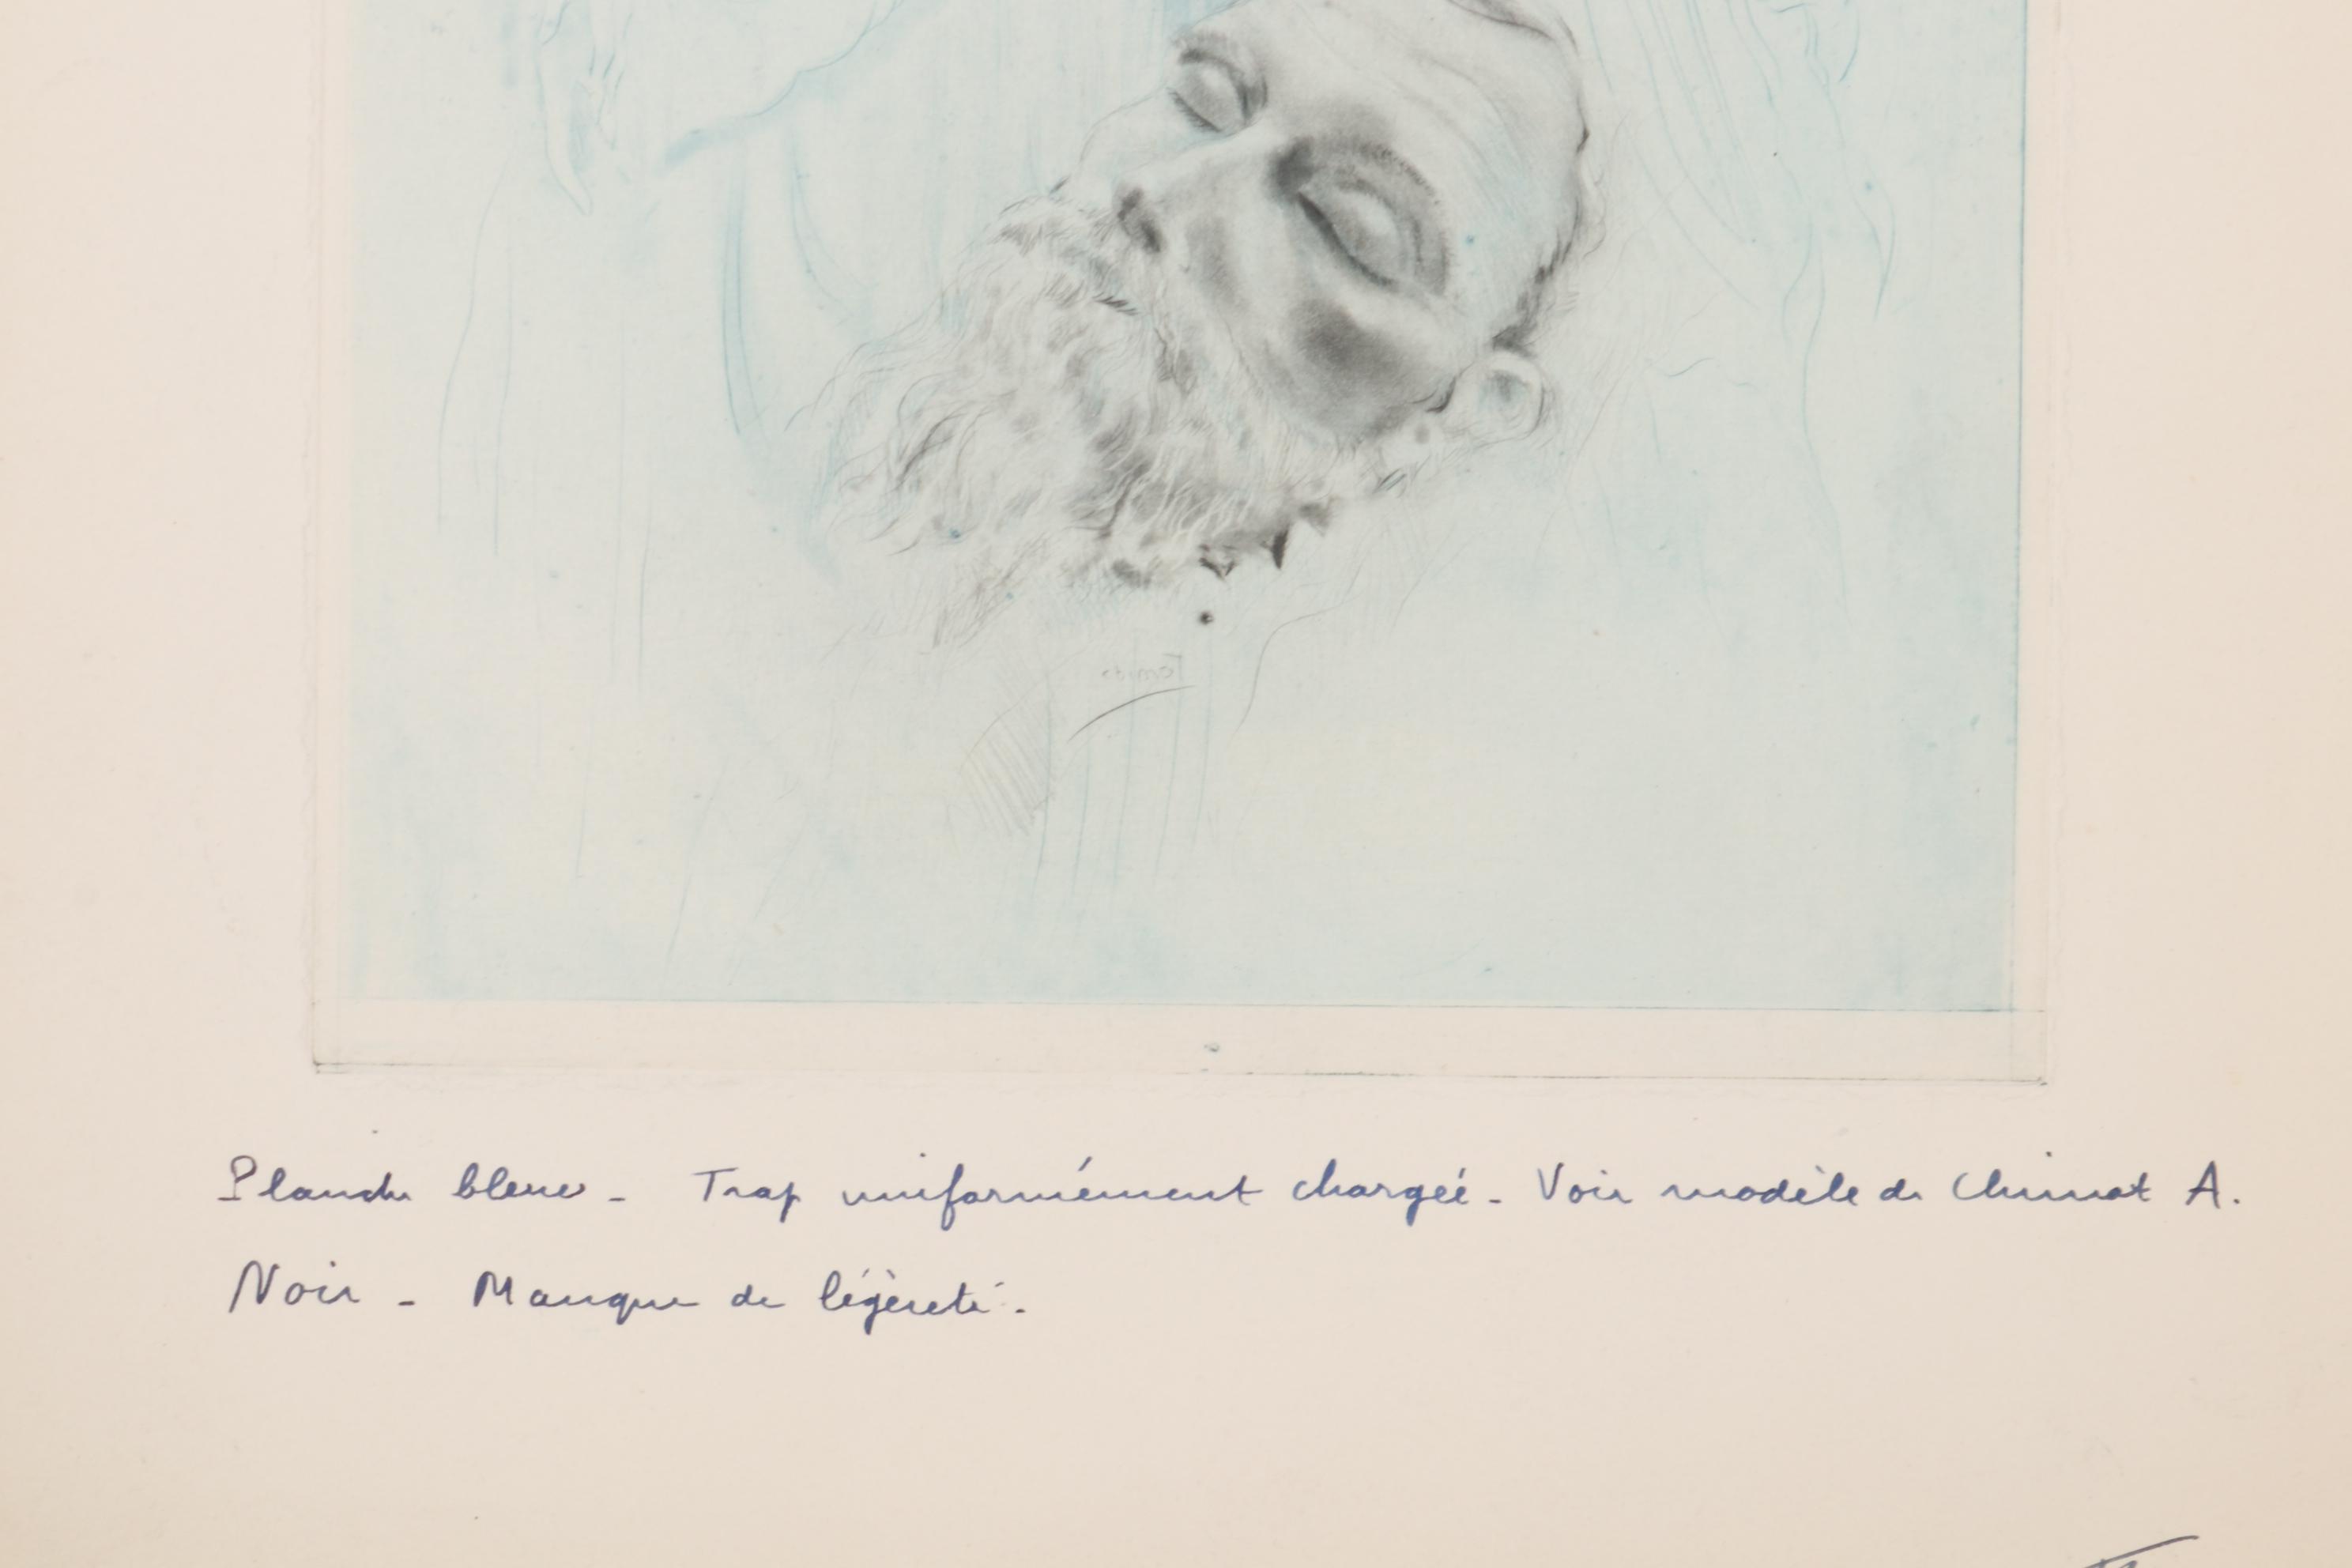 Planche bleue - Trop uniformément chargée - Voir modèle de Chimot A.
Noir - Manque de légèreté -